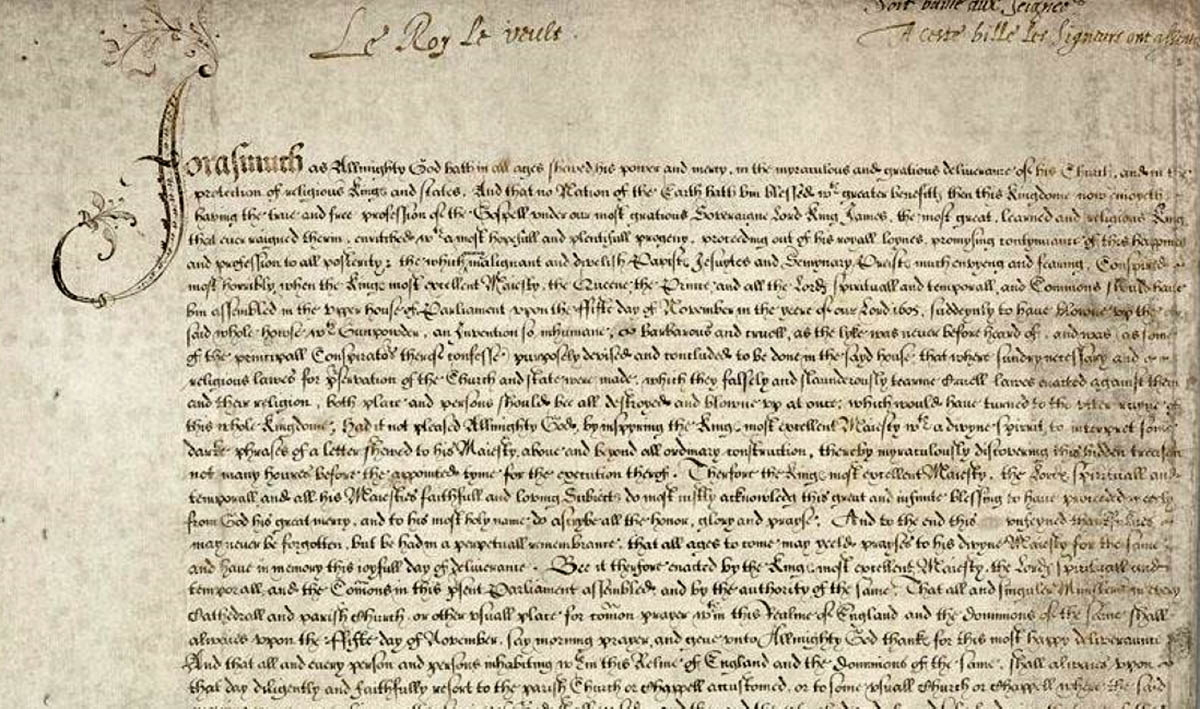 Soit baille aux Seigneurs
Le Roy le veult.
A ceste bille les Signeurs ont assent
Forasmuch as Allmighty God hath in all ages shewed his power and mercy, in the myraculous and gratious deliverance of his Church, and in the
protection of religious Kings and states, And that no Nation of the Earth hath bin blessed wth greater benefitts then this Kingdome now enioyeth
having the true and free profession of the Gospell under our most gratious Soveraigne Lord King James, the most great, learned and religious King
that ever raigned therin, enritched wth a most hopefull and plentifull progeny, proceeding out of his royall loynes, promysing contynuance of this happines
and profession to all posterity: the which many malignant and divelish Papists Jesuytes and Semynary Preists much envyeng and fearing, Conspired
most horribly, when the Kings most excellent Maiesty, the Queene the Prince and all the Lords spirituall and temporall, and Commons should have
bin assembled in the upper house of Parliament upon the ffifte day of November in the yeere of our Lord 1605, suddenly to have blowne up the
said whole howse wth Gunpowder, an Invention so inhumane, so barbarous and cruell, as the lyke was never before heard of, and was, as some
of the principall Conspirators therof confesse, purposely devised and concluded to be done in the sayd house, that where sundry necessary and
religious lawes for pservation of the Church and state were made, which they falsely and slaunderously tearme Cruell lawes enacted against them
and their religion, both place and persons should bee all destroyed and blowne up at once; which would have turned to the utter ruyne of
this whole Kingdome; Had it not pleased Allmighty God, by inspyring the Kings most excellent Maiesty wth a divyne spirrit, to interpret some
darke phrases of a letter shewed to his Maiesty, above and beyond all ordinary construction, thereby myraculously discovering this hidden treason
not many howres before the appointed tyme for the execution therof. Therfore the Kings most excellent Maiesty, the Lords spirituall and
temporall and all his Maiesties faithfull and loving Subiects do most iustly acknowledg this great and infinite blessing to have proceeded meerly
from God his great mercy, and to his most holy name do ascrybe all the honor, glory and prayse. And to the end this unfeyned thankfulnes
may never be forgotten, but be had in a perpetuall remembrance, that all ages to come may yeeld prayses to his divyne Maiesty for the same
and have in memory this ioyfull day of deliverance. Bee it therfore enacted by the Kings most excellent Maiesty, the Lords spirituall and
temporall, and the Comons in this psent Parliament assembled, and by the authority of the same, That all and singuler Ministers in every
Cathedrall and parish Church, or other usuall place for comon prayer wthin this Realme of England and the dominions of the same shall
alwaies upon the ffifte day of November, say morning prayer, and geve unto Allmighty God thanks for this most happy deliveraunce
And that all and every person and persons inhabiting wthin this Relme of England and the dominions of the same, shall alwaies upon
that day diligently and faithfully resort to the parish Church or Chappell accustomed, or to some usuall Church or Chappell where the said